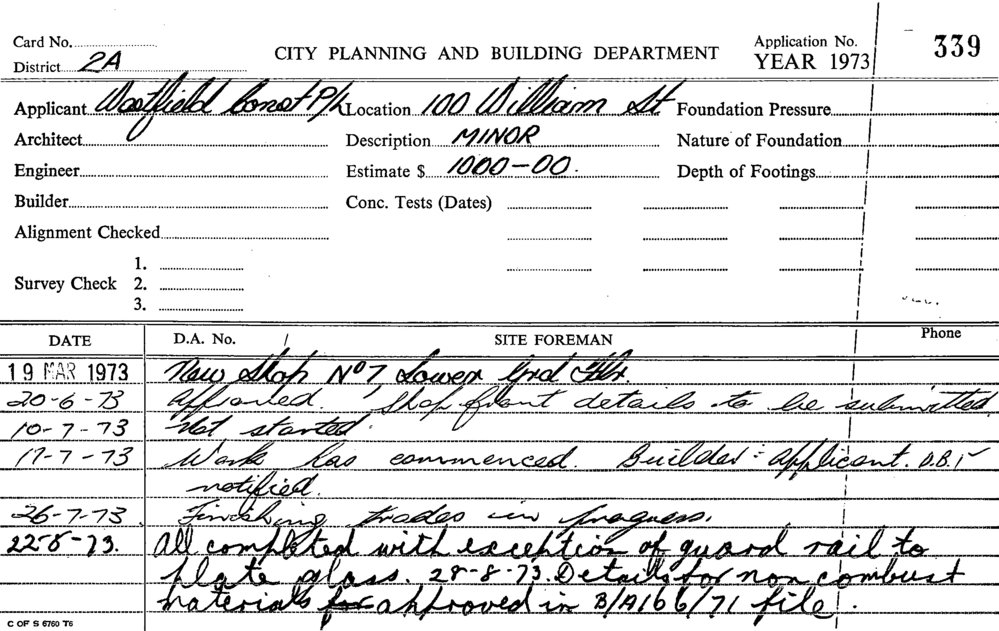 Card No. CITY PLANNING AND BUILDING DEPARTMENT Application No. 339
District 2A YEAR 1973
Applicant Westfield Const P/L Location 100 William St Foundation Pressure
Architect Description MINOR Nature of Foundation
Engineer Estimate $ 1000-00. Depth of Footings
Builder Conc. Tests (Dates)
Alignment Checked
1.
Survey Check 2.
3.
DATE D.A. No. / SITE FOREMAN Phone
19 MAR 1973 New Shop No 7, Lower Grd Flr.
20-6-73 Approved. Shop front details to be submitted
10-7-73 Not started.
17-7-73 Work has commenced. Builder = applicant. D.B.I
notified.
26-7-73. Finishing trades in progress.
22-8-73. All completed with exception of guard rail to
plate glass. 28-8-73. Details for non combust
materials for approved in B/A166/71 file.
C OF S 6760 T6